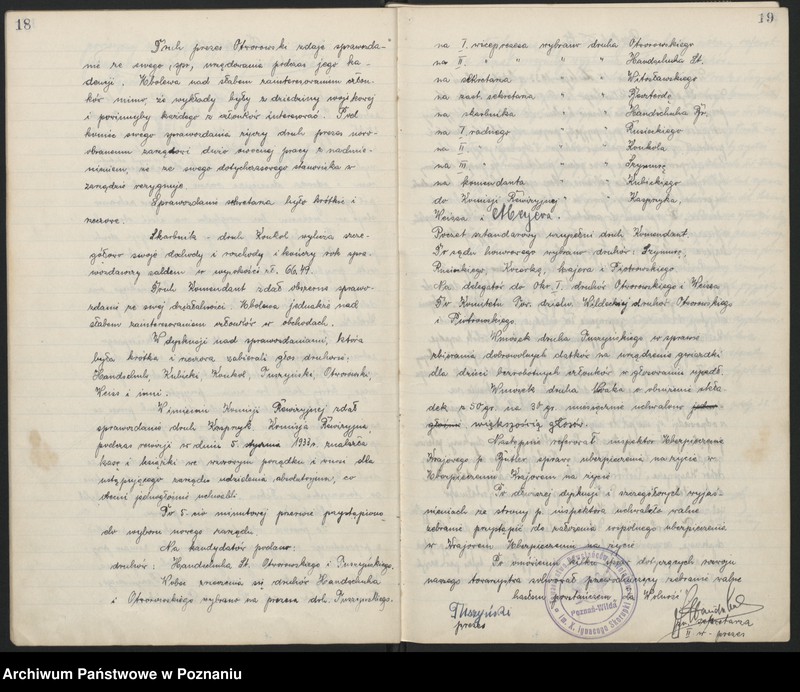 18
Druh prezes Otworowski zdaje sprawozda-
nie ze swego spr. urzędowania podczas jego ka-
dencji. Ubolewa nad słabem zainteresowaniem człon-
ków mimo, że wykłady były z dziedziny wojskowej
i powinnyby każdego z członków interesować. Pod
koniec swego sprawozdania życzy druh prezes nowo-
obranemu zarządowi dużo owocnej pracy z nadmie-
nieniem, że ze swego dotychczasowego stanowiska w
zarządzie rezygnuje.
Sprawozdanie sekretarza było krótkie i
rzeczowe.
Skarbnik - druh Konkol wylicza szcze-
gółowo swoje dochody i rozchody i kończy rok spra-
wozdawczy saldem w wysokości zł. 66.49.
Druh Komendant zdał obszerne sprawo-
zdanie ze swej działalności. Ubolewa jednakże nad
słabem zainteresowaniem członków w obchodach.
W dyskusji nad sprawozdaniami, która
była krótka i rzeczowa zabierali głos druhowie:
Handschuh, Kubicki, Konkol, Tuszyński, Otworowski,
Weiss i inni.
W imieniu Komisji Rewizyjnej zdał
sprawozdanie druh Kasprzyk. Komisja Rewizyjna
podczas rewizji w dniu 5. stycznia 1933 r. znalazła
kasę i książki we wzorowym porządku i wnosi dla
ustępującego zarządu udzielenia absolutorjum, co
obecni jednogłośnie uchwalili.
Po 5-cio minutowej przerwie przystąpiono
do wyboru nowego zarządu.
Na kandydatów podano:
druhów: Handschuha St. Otworowskiego i Tuszyńskiego.
Wobec zrzeczenia się druhów Handschuha
i Otworowskiego wybrano na prezesa drh. Tuszyńskiego.
19
na I. wiceprezesa wybrano druha Otworowskiego
na II. " " " " Handschuha St.
na sekretarza " " Witosławskiego
na zast. sekretarza " "
na skarbnika " " Handschuha Fr.
na I radnego " " Rusieckiego
na II " " " Konkola
na III " " "
na komendanta " " Kubickiego
do Komisji Rewizyjnej " " Kasprzyka,
Weissa i Meyera.
Poczet sztandarowy uzupełni druh Komendant.
Do sądu honorowego wybrano druhów
Rusieckiego, Majora i Piotrowskiego
Na delegatów do Okr. I. druhów Otworowskiego i Weissa
Do Komitetu dzieln. Wildeckiej druhów Otworowskiego
i Piotrowskiego.
Wniosek druha Tuszyńskiego w sprawie
zbierania dobrowolnych datków na urządzenie gwiazdki
dla dzieci bezrobotnych członków w głosowaniu upadł.
Wniosek druha o obniżenie skła
dek z 50 gr. na 30 gr. miesięcznie uchwalono
większością głosów.
Następnie referował inspektor Ubezpieczenia
Krajowego p. Butler sprawę ubezpieczenia na życie w
Ubezpieczeniu Krajowem na życie.
Po dłuższej dyskusji i szczegółowych wyjaś-
nieniach ze strony p. inspektora uchwaliło walne
zebranie przystąpić do założenia wspólnego ubezpieczenia
w Krajowem Ubezpieczeniu na życie.
Po omówieniu kilku spraw dotyczących rozwoju
naszego towarzystwa solwował przewodniczący zebranie walne
hasłem za Wolność!
Tuszyński
prezes
Poznań-Wilda
im. X. Ignacego Skorupki
Handschuh
II w-prezes
Archiwum Państwowe w Poznaniu